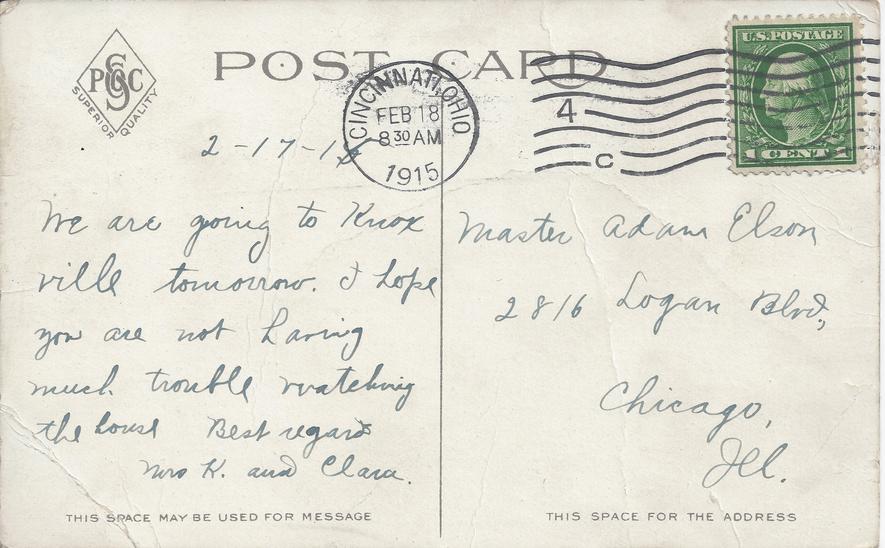 POST CARD
S S
P C C
SUPERIOR QUALITY
CINCINNATI, OHIO
FEB 18
8 30 AM
1915
4
C
U.S. POSTAGE
1 CENT 1
2-17-15
We are going to Knox
ville tomorrow. I hope
you are not having
much trouble watching
the house Best regards
Mrs K. and Clara.
Master Adam Elson
2816 Logan Blvd,
Chicago,
Ill.
THIS SPACE MAY BE USED FOR MESSAGE
THIS SPACE FOR THE ADDRESS